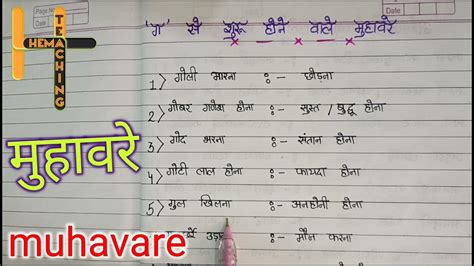 Page No.
Date
HEMA
TEACHING
'ग' से शुरू होने वाले मुहावरे
1) गोली मारना :- छोड़ना
2) गोबर गणेश होना :- सुस्त / बुद्धू होना
3) गोद भरना :- संतान होना
4) गोटी लाल होना :- फायदा होना
5) गुल खिलना :- अनहोनी होना
:- मौज करना
मुहावरे
muhavare